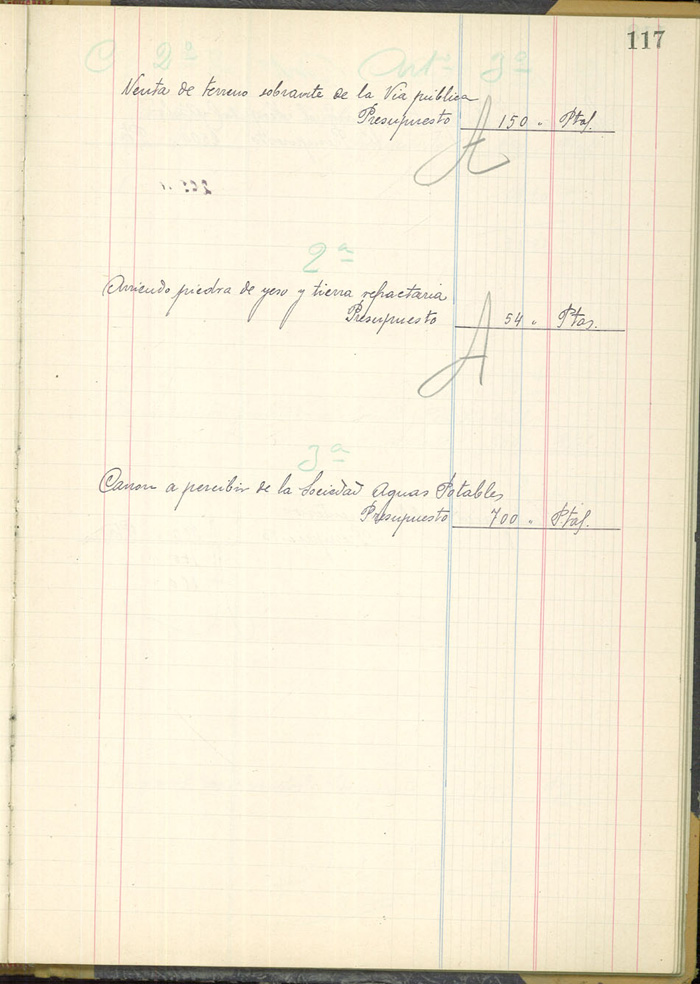 117
C 2ª Artº 3º
Venta de terreno sobrante de la Via pública
Presupuesto 150 " Ptas.
A
2ª
Arriendo piedra de yeso y tierra refractaria
Presupuesto 54 " Ptas.
A
3ª
Canon a percibir de la Sociedad Aguas Potables
Presupuesto 700 " Ptas.